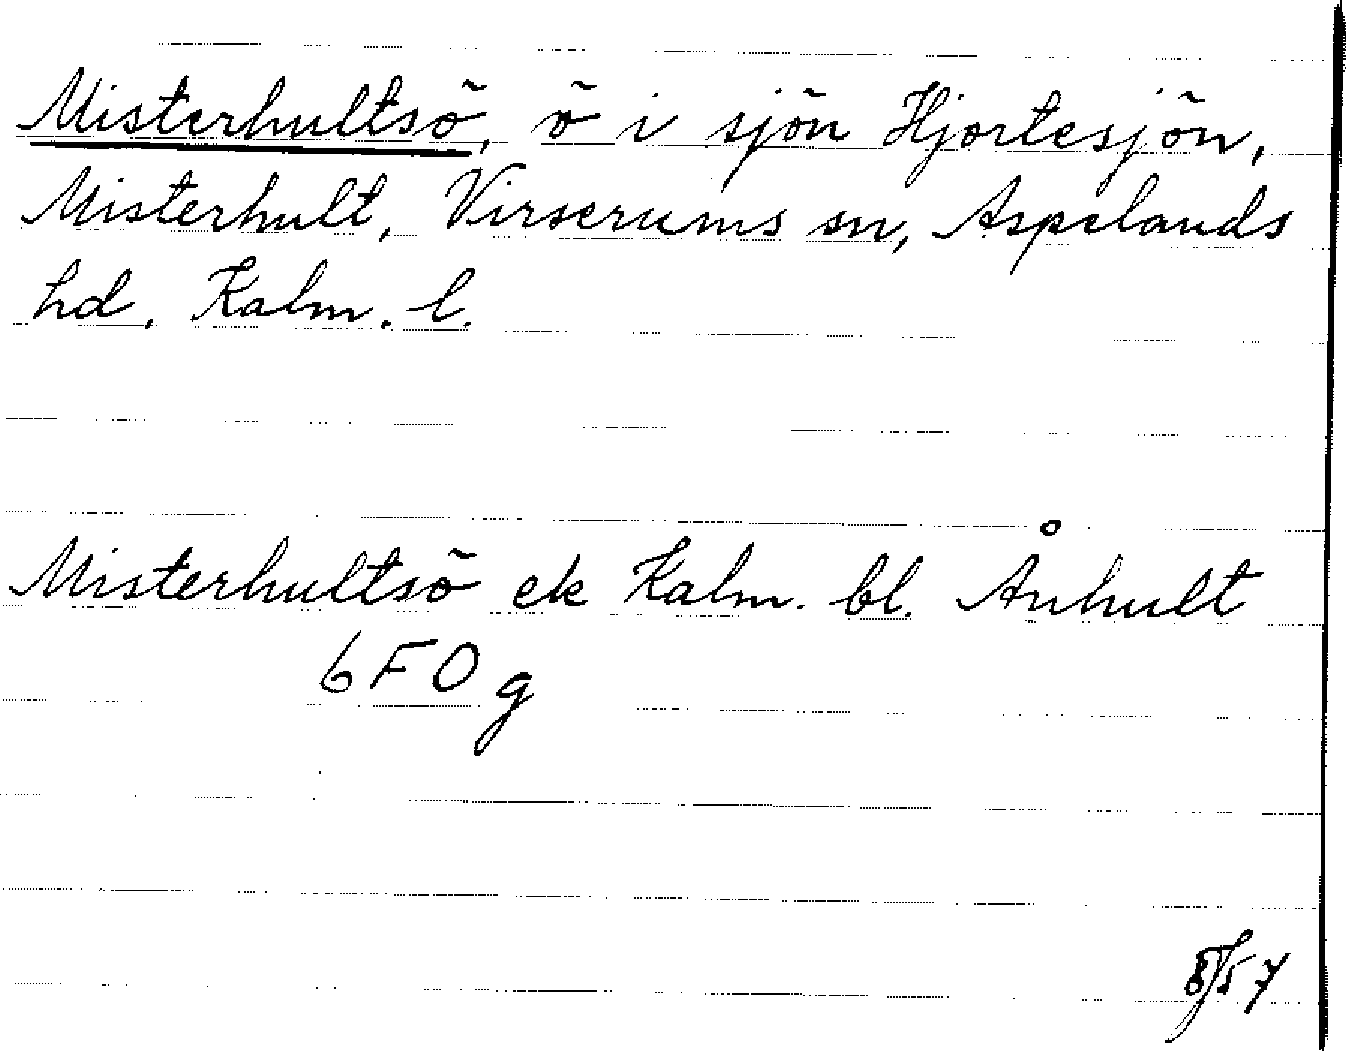 Misterhultsö, ö i sjön Hjortesjön,
Misterhult, Virserums sn, Aspelands
hd, Kalm. l.
Misterhultsö ek Kalm. bl. Ånhult
6 F 0 g